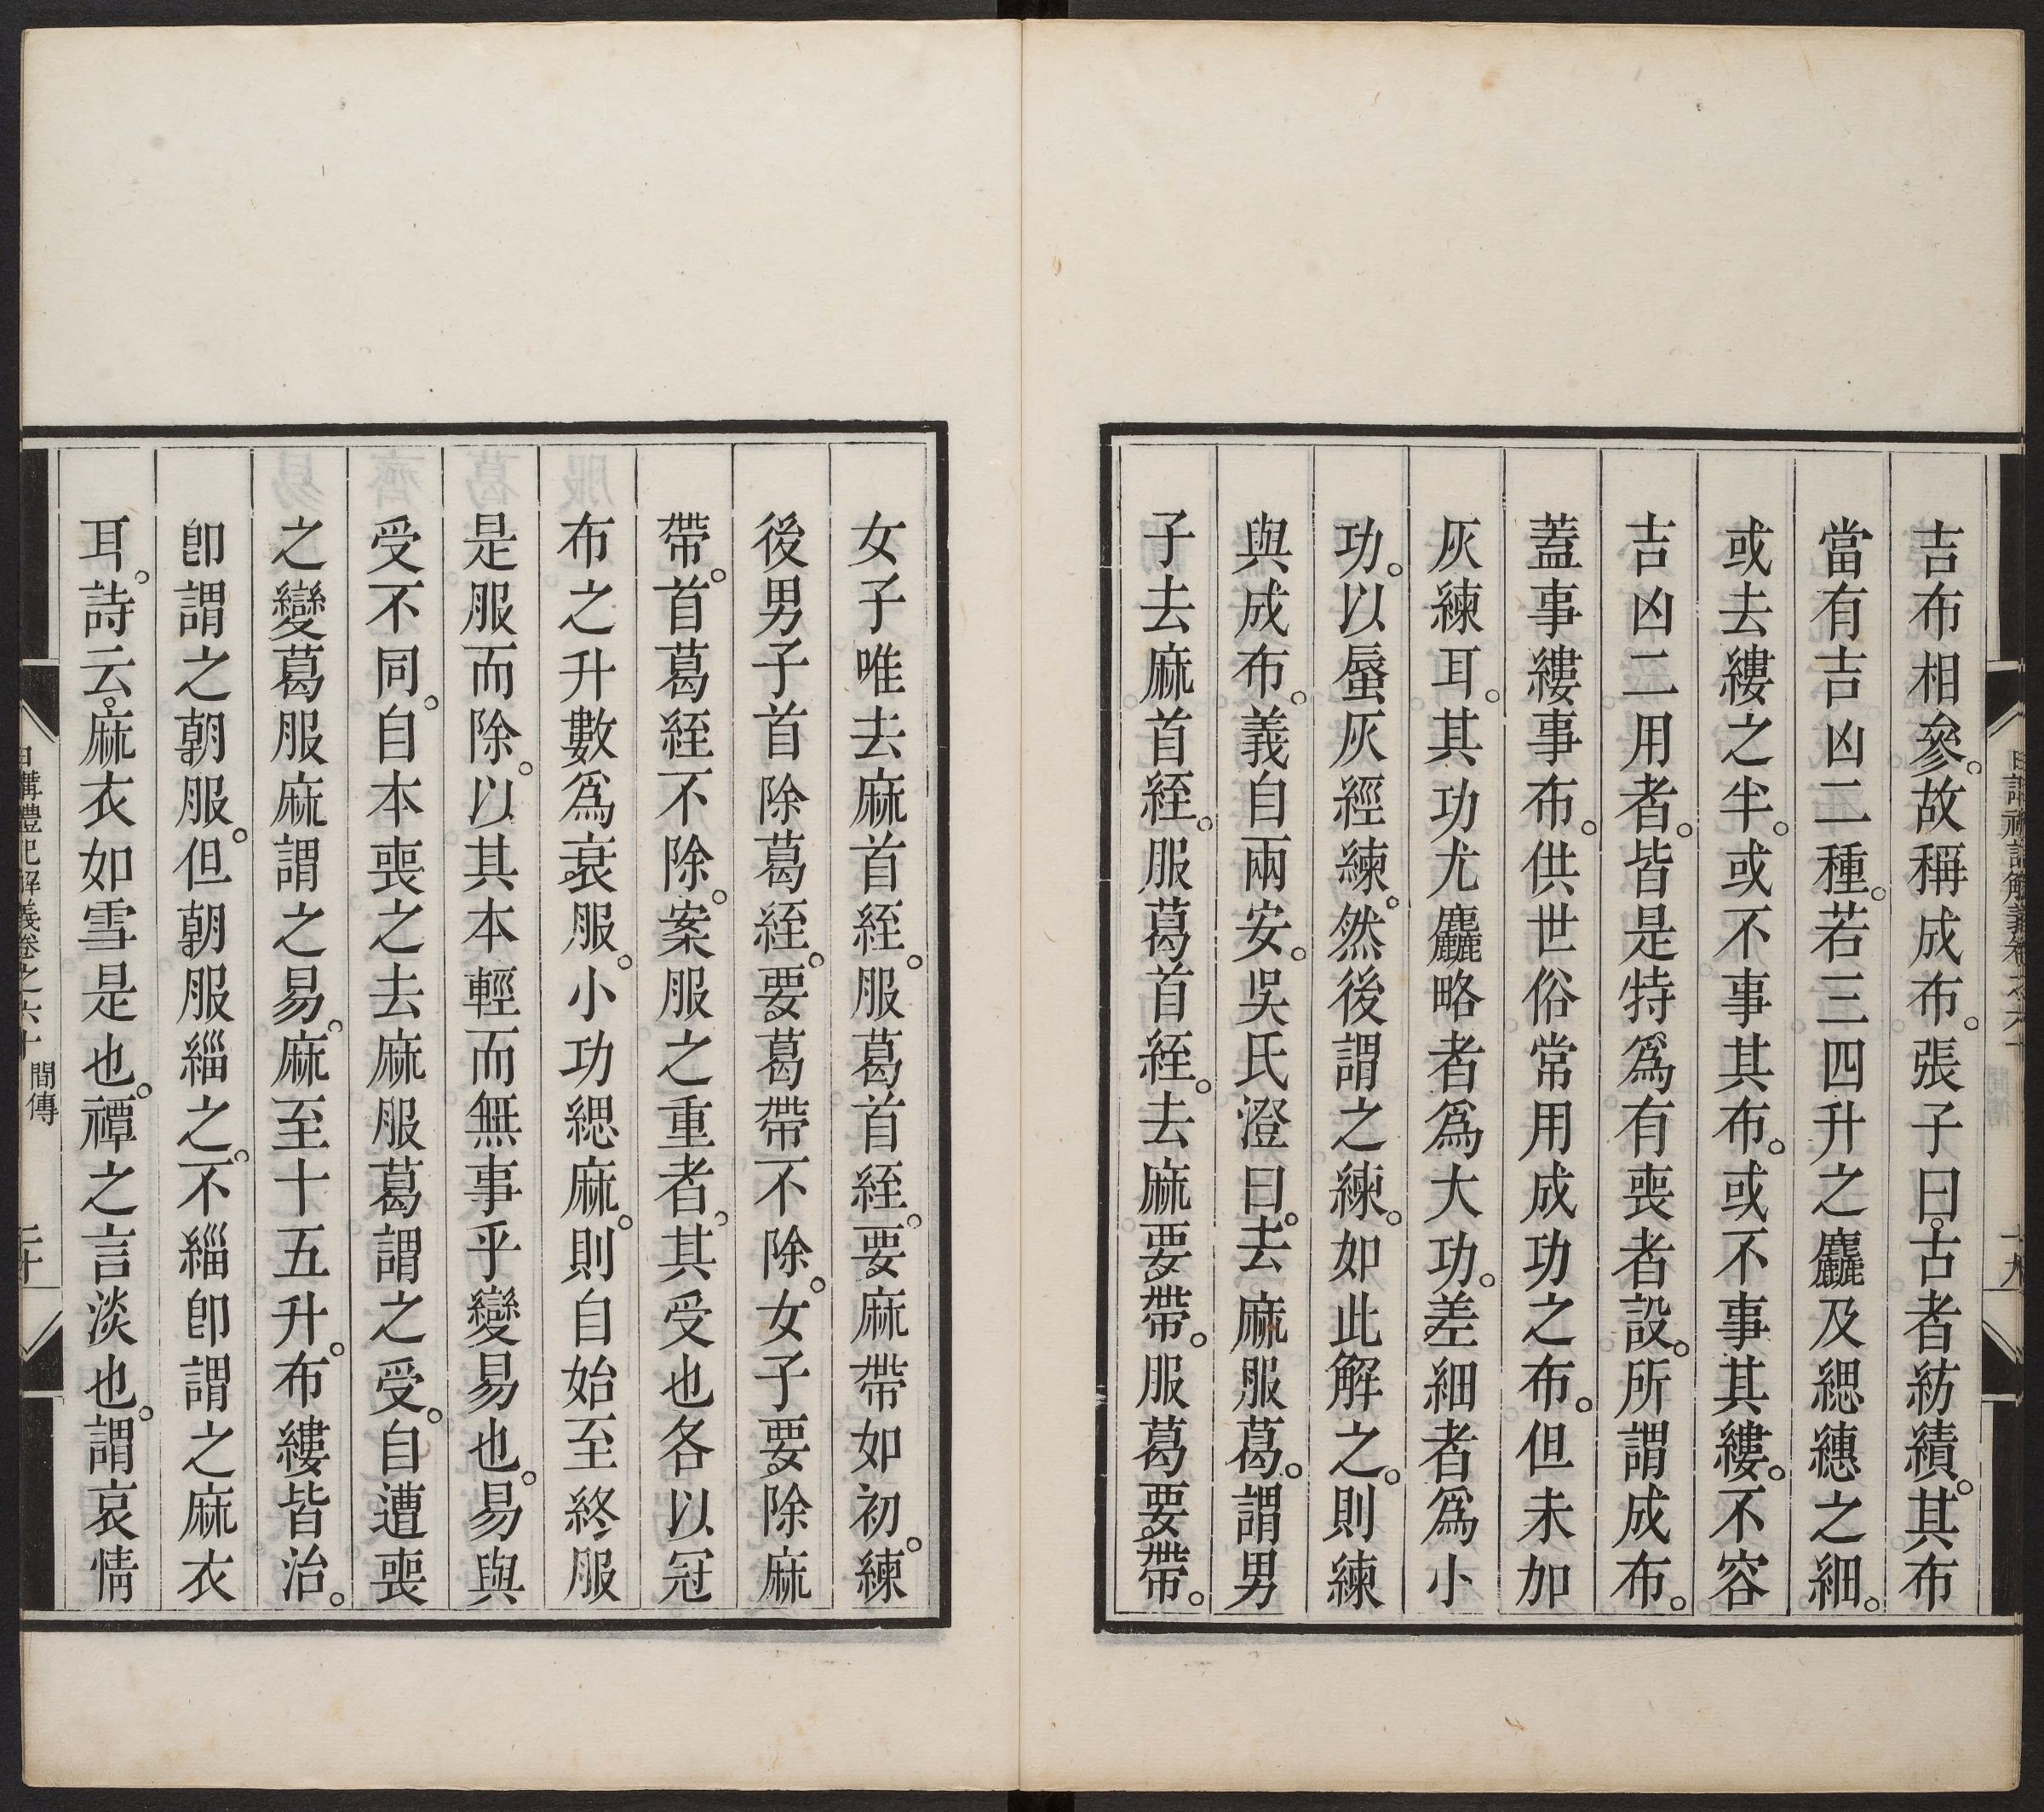 吉布相參。故稱成布。張子曰。古者紡績。其布
當有吉凶二種。若三四升之麤及緦繐之細。
或去縷之半。或不事其布。或不事其縷。不容
吉凶二用者。皆是特爲有喪者設。所謂成布。
蓋事縷事布。供世俗常用成功之布。但未加
灰練耳。其功尤麤略者爲大功。差細者爲小
功。以蜃灰經練。然後謂之練。如此解之。則練
與成布。義自兩安。吳氏澄曰。去麻服葛。謂男
子去麻首絰。服葛首絰。去麻要帶。服葛要帶。
女子唯去麻首絰。服葛首絰。要麻帶如初。練
後男子首除葛絰。要葛帶不除。女子要除麻
帶。首葛絰不除。案服之重者。其受也各以冠
布之升數爲衰服。小功緦麻。則自始至終服
是服而除。以其本輕而無事乎變易也。易與
受不同。自本喪之去麻服葛謂之受。自遭喪
之變葛服麻謂之易。麻至十五升。布縷皆治。
卽謂之朝服。但朝服緇之。不緇卽謂之麻衣
耳。詩云。麻衣如雪是也。禫之言淡也。謂哀情
日講禮記解義卷之六十 間傳